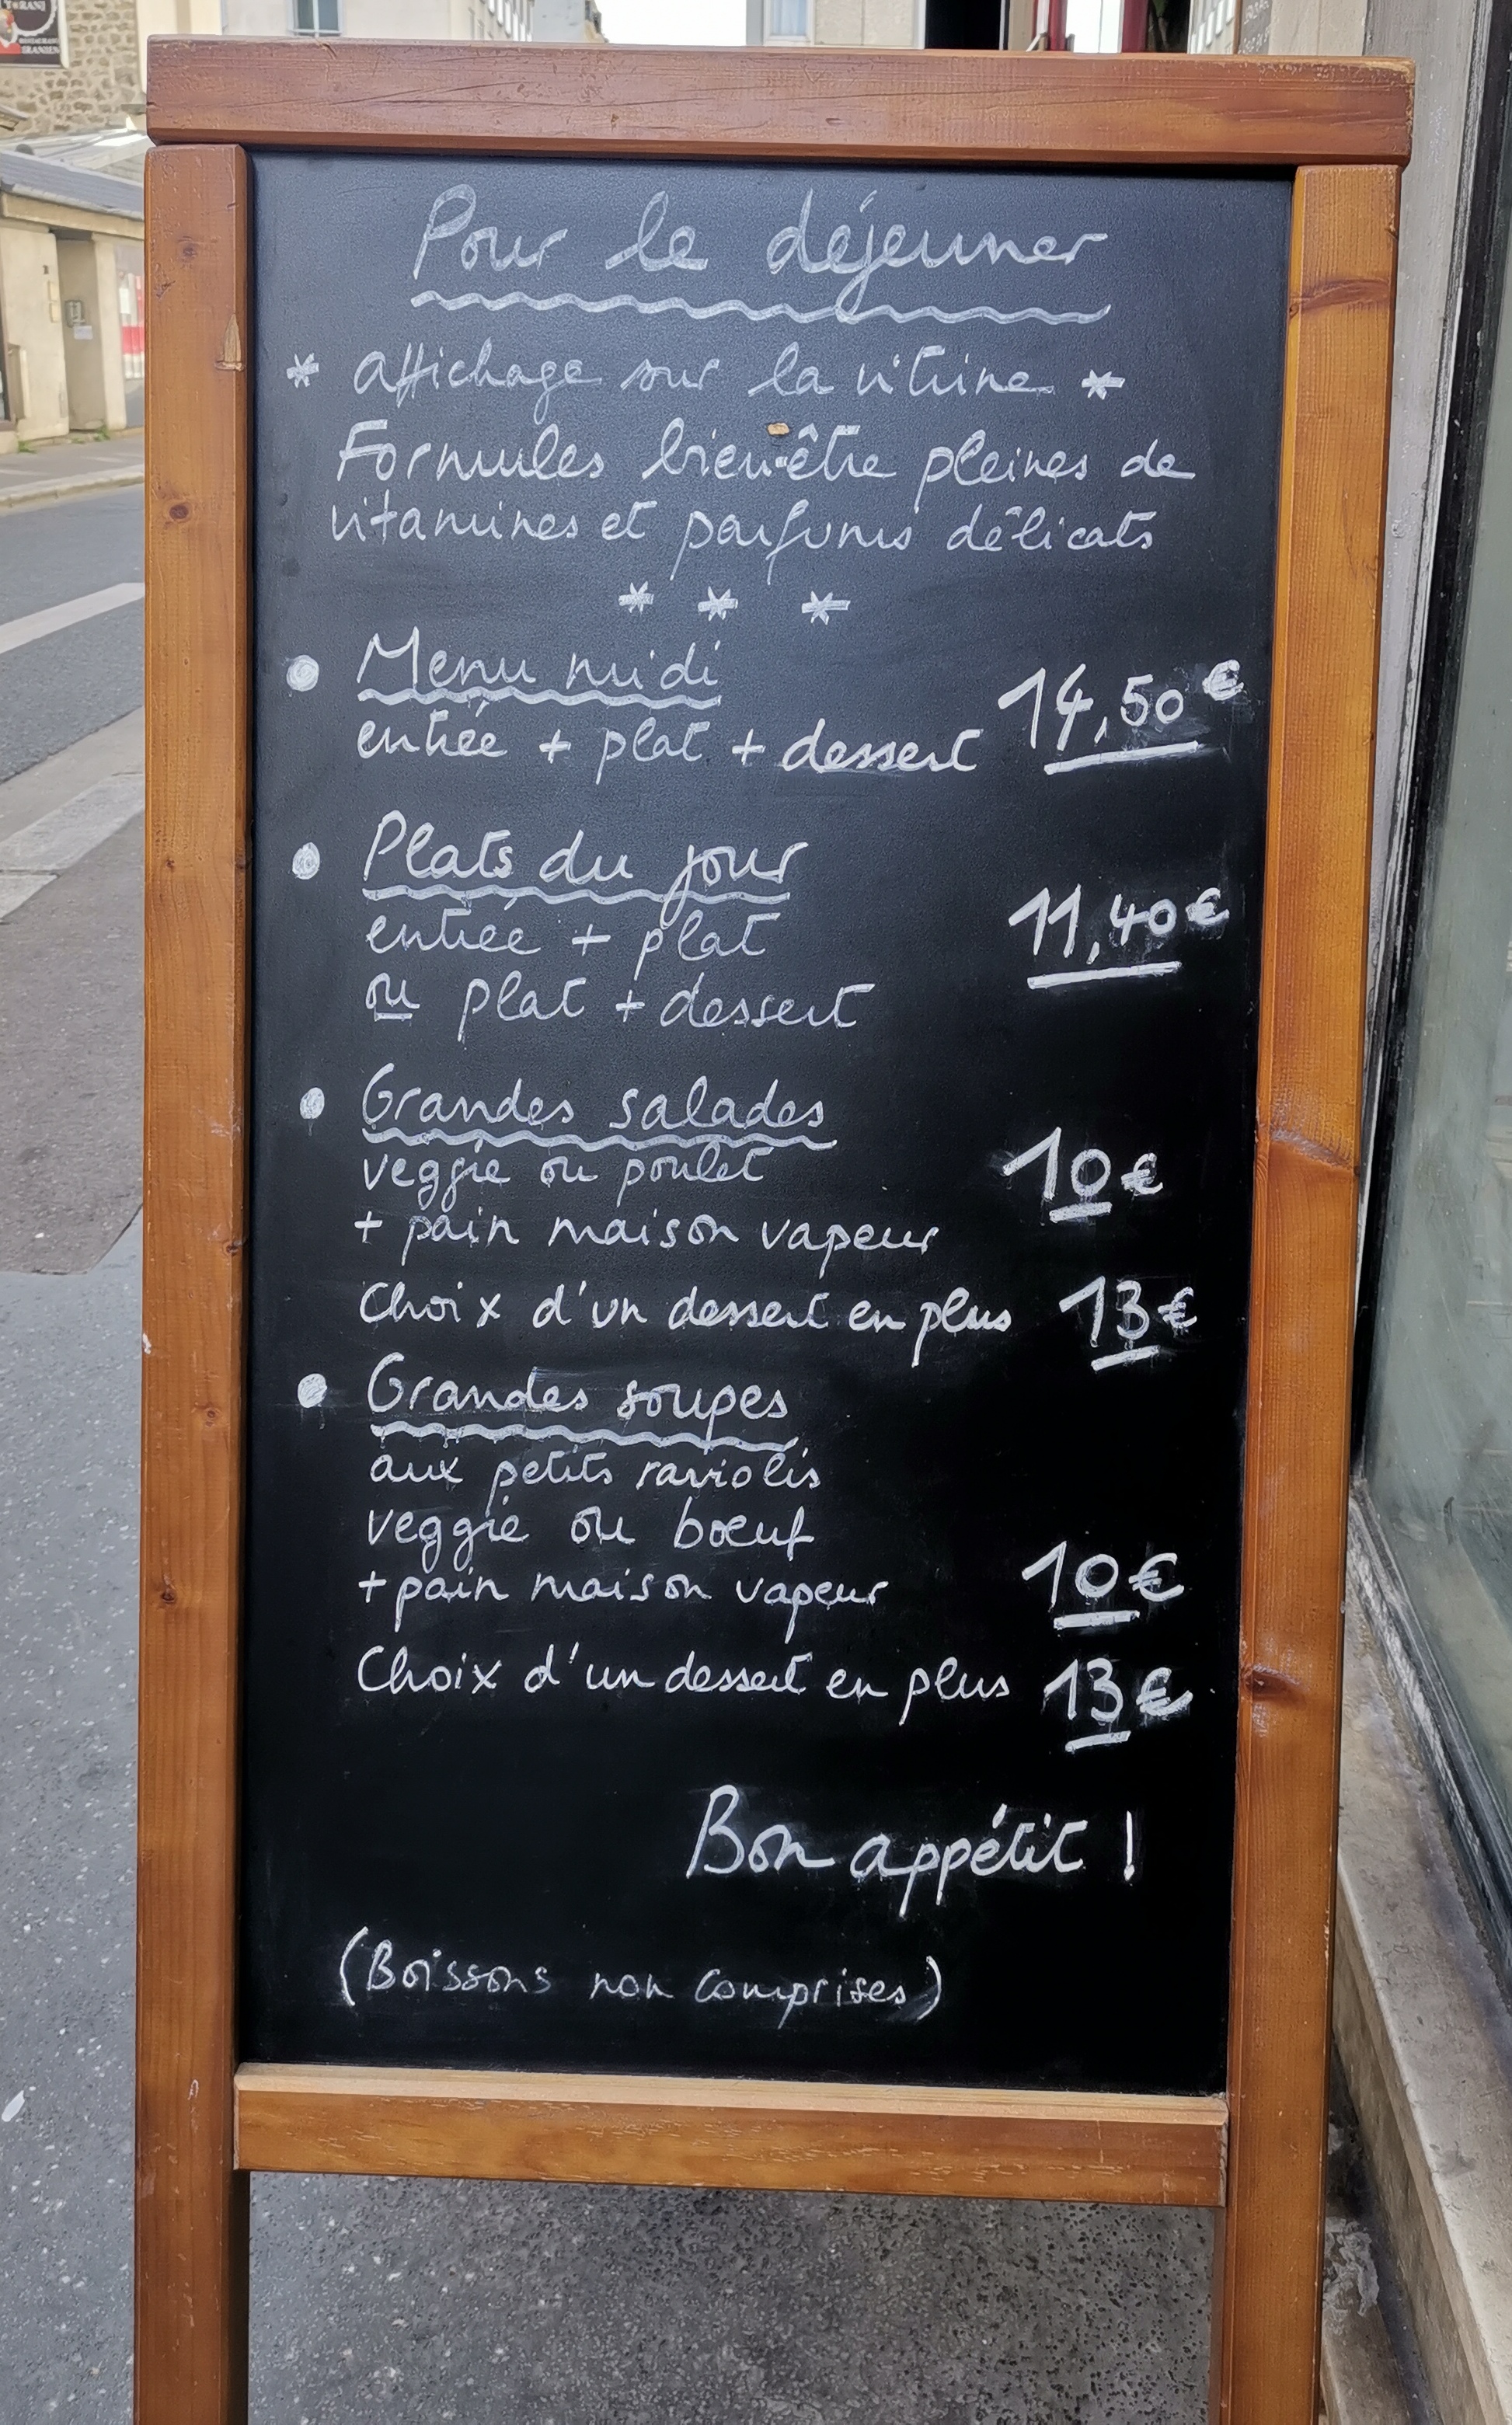 TARANJ
RESTAURANT
IRANIEN
Pour le déjeuner
* affichage sur la vitrine *
Formules bien-être pleines de
vitamines et parfums délicats
* * *
• Menu midi
entrée + plat + dessert 14,50 €
• Plats du jour
entrée + plat 11,40 €
ou plat + dessert
• Grandes salades
veggie ou poulet 10 €
+ pain maison vapeur
Choix d'un dessert en plus 13 €
• Grandes soupes
aux petits raviolis
veggie ou bœuf
+ pain maison vapeur 10 €
Choix d'un dessert en plus 13 €
Bon appétit !
(Boissons non comprises)